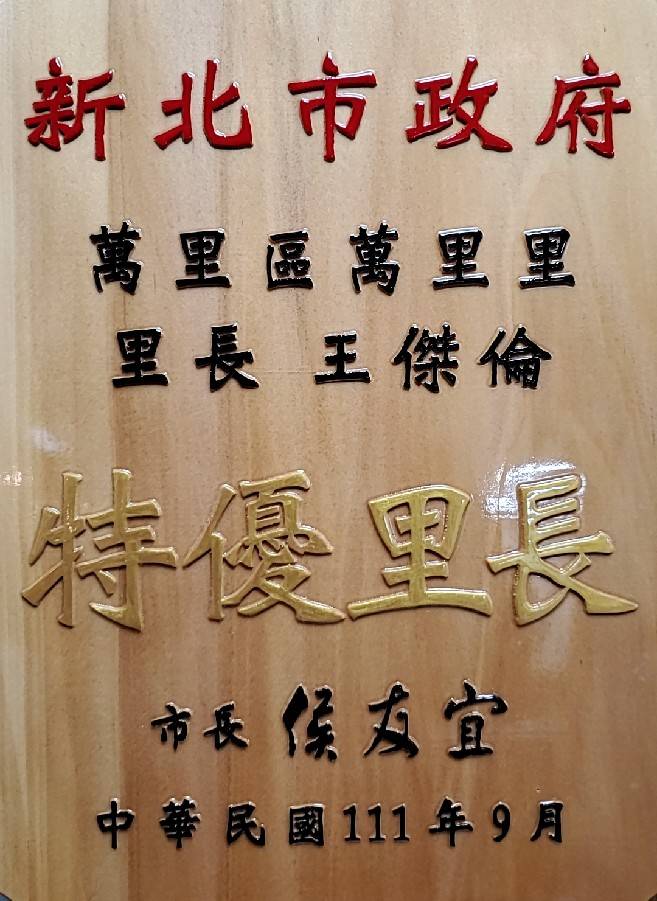 新北市政府
萬里區萬里里
里長 王傑倫
特優里長
市長 侯友宜
中華民國111年9月